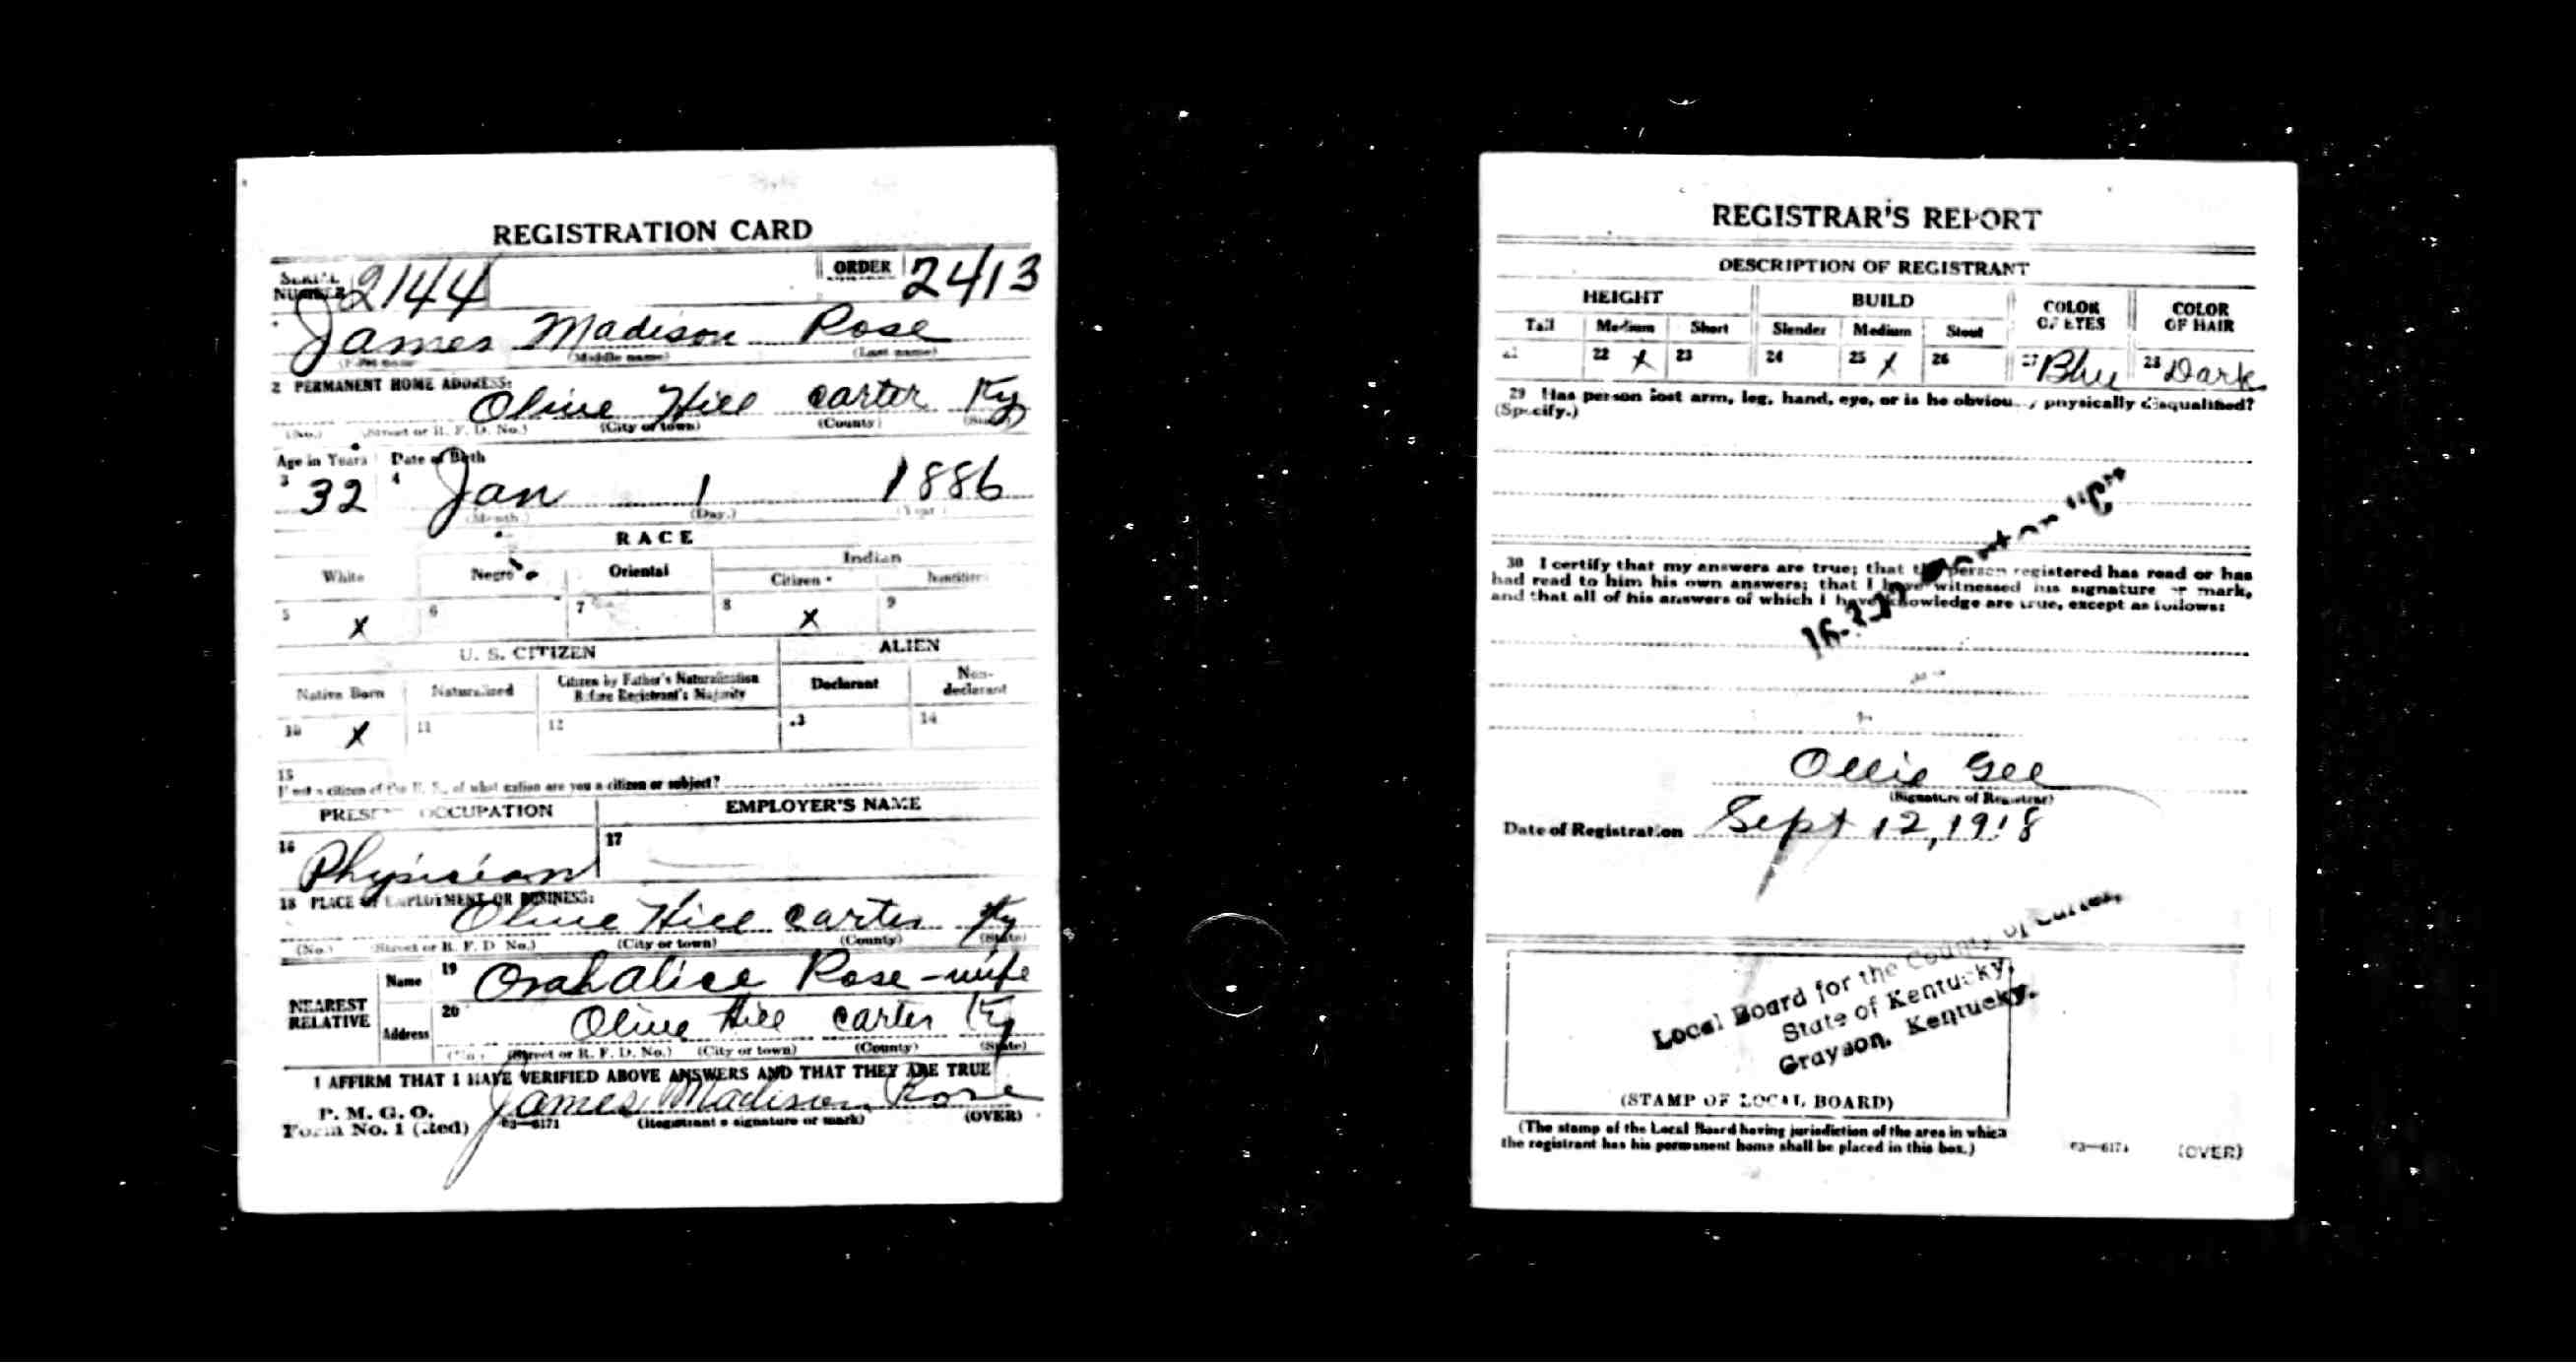 REGISTRATION CARD
SERIAL NUMBER 2144 ORDER 2413
James Madison Rose
(First name) (Middle name) (Last name)
2 PERMANENT HOME ADDRESS:
Olive Hill Carter Ky
(No.) (Street or R. F. D. No.) (City or town) (County) (State)
Age in Years Date of Birth
3 32 4 Jan 1 1886
(Month.) (Day.) (Year)
RACE
White Negro Oriental Indian
Citizen
5 X 6 7 8 X 9
U. S. CITIZEN ALIEN
Native Born Naturalized Citizen by Father's Naturalization Before Registrant's Majority Declarant Non-declarant
10 X 11 12 13 14
15
If not a citizen of the U. S., of what nation are you a citizen or subject?
PRESENT OCCUPATION EMPLOYER'S NAME
16 Physician 17
18 PLACE OF EMPLOYMENT OR BUSINESS:
Olive Hill Carter Ky
(No.) (Street or R. F. D. No.) (City or town) (County) (State)
NEAREST RELATIVE Name 19 Orah Alice Rose - wife
Address 20 Olive Hill Carter Ky
(No.) (Street or R. F. D. No.) (City or town) (County) (State)
I AFFIRM THAT I HAVE VERIFIED ABOVE ANSWERS AND THAT THEY ARE TRUE
P. M. G. O.
Form No. 1 (Red) 03—6171 James Madison Rose
(Registrant's signature or mark) (OVER)
REGISTRAR'S REPORT
DESCRIPTION OF REGISTRANT
HEIGHT BUILD COLOR OF EYES COLOR OF HAIR
Tall Medium Short Slender Medium Stout
21 22 X 23 24 25 X 26 27 Blu 28 Dark
29 Has person lost arm, leg, hand, eye, or is he obviously physically disqualified?
(Specify.)
30 I certify that my answers are true; that the person registered has read or has
had read to him his own answers; that I have witnessed his signature or mark,
and that all of his answers of which I have knowledge are true, except as follows:
Ollie Gee
(Signature of Registrar)
Date of Registration Sept 12, 1918
Local Board for the County of Carter,
State of Kentucky,
Grayson, Kentucky.
(STAMP OF LOCAL BOARD)
(The stamp of the Local Board having jurisdiction of the area in which
the registrant has his permanent home shall be placed in this box.)
03—6171 (OVER)